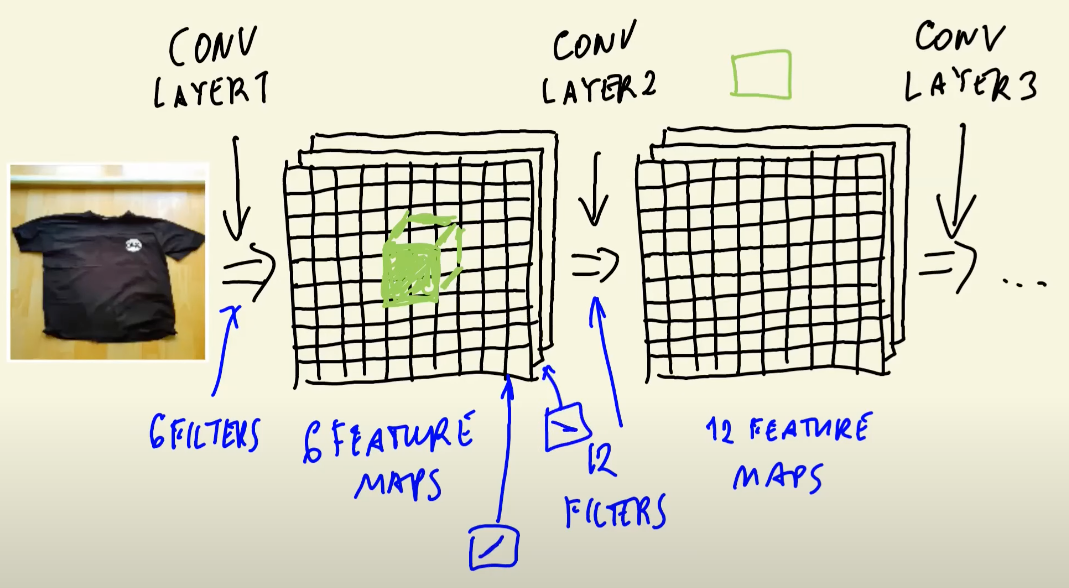 CONV
LAYER1
CONV
LAYER2
CONV
LAYER3
6 FILTERS
6 FEATURE
MAPS
12
FILTERS
12 FEATURE
MAPS
...